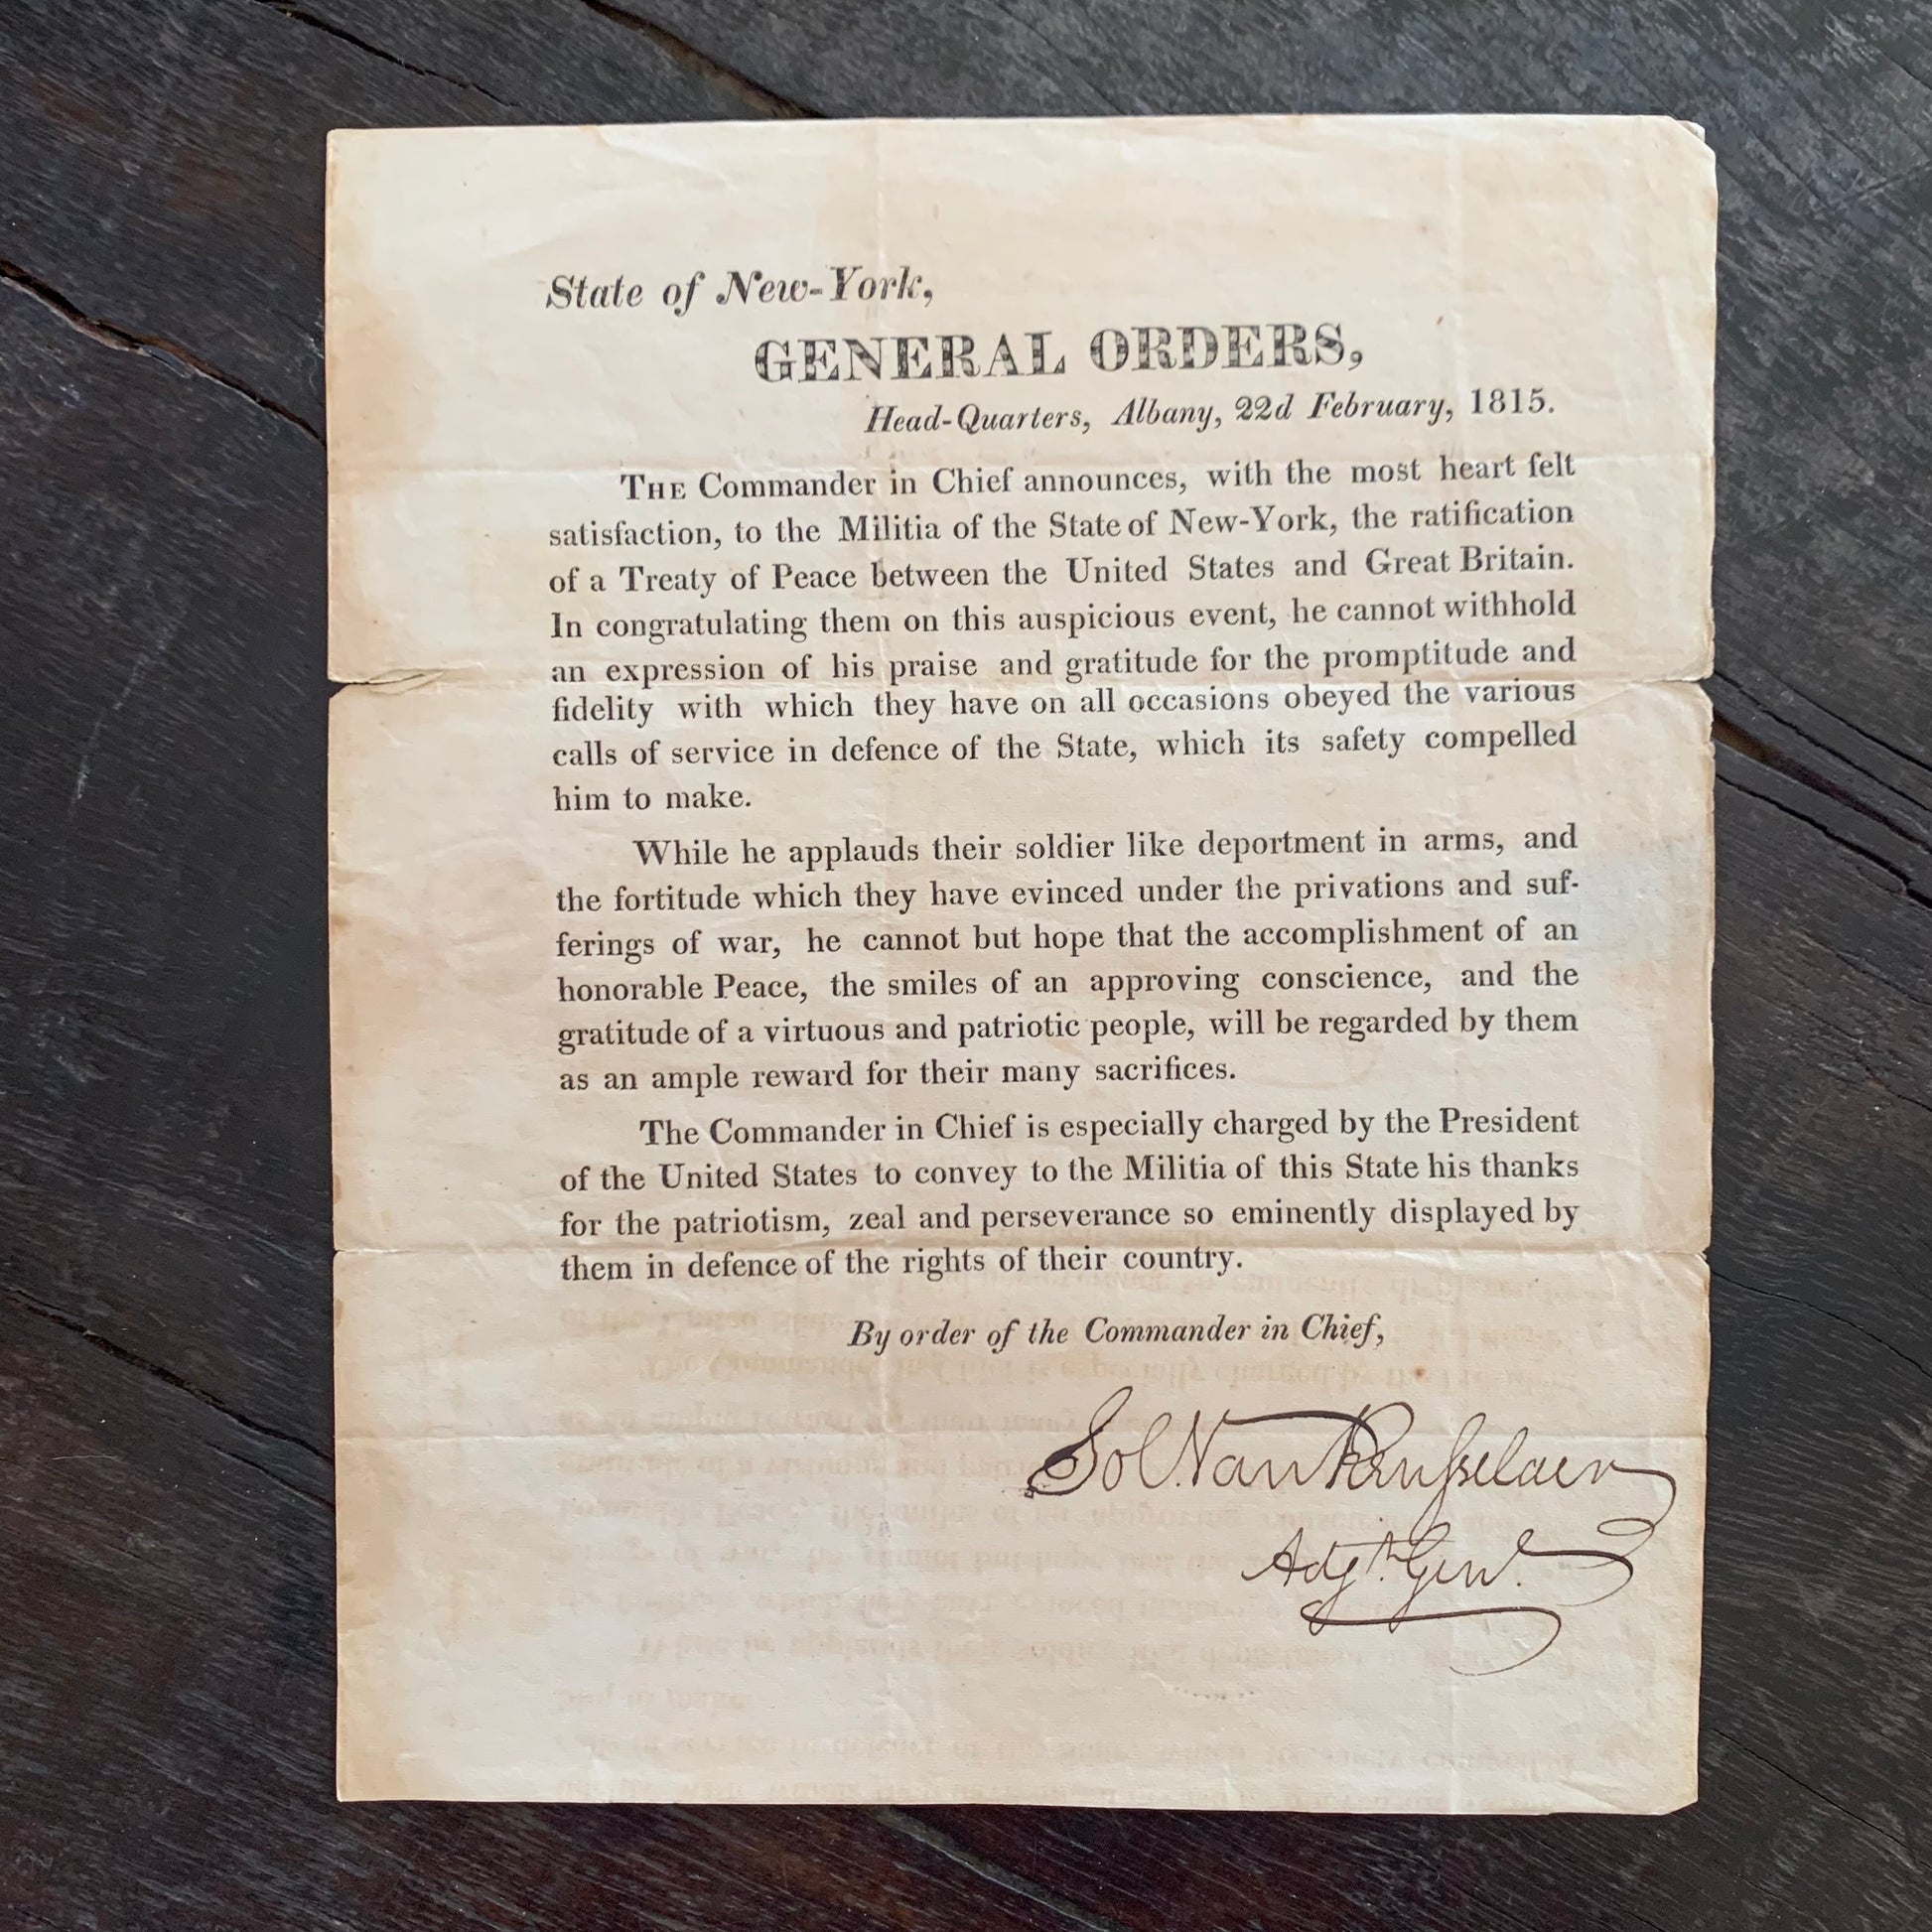 State of New-York,
GENERAL ORDERS,
Head-Quarters, Albany, 22d February, 1815.
THE Commander in Chief announces, with the most heart felt
satisfaction, to the Militia of the State of New-York, the ratification
of a Treaty of Peace between the United States and Great Britain.
In congratulating them on this auspicious event, he cannot withhold
an expression of his praise and gratitude for the promptitude and
fidelity with which they have on all occasions obeyed the various
calls of service in defence of the State, which its safety compelled
him to make.
While he applauds their soldier like deportment in arms, and
the fortitude which they have evinced under the privations and suf-
ferings of war, he cannot but hope that the accomplishment of an
honorable Peace, the smiles of an approving conscience, and the
gratitude of a virtuous and patriotic people, will be regarded by them
as an ample reward for their many sacrifices.
The Commander in Chief is especially charged by the President
of the United States to convey to the Militia of this State his thanks
for the patriotism, zeal and perseverance so eminently displayed by
them in defence of the rights of their country.
By order of the Commander in Chief,
Sol. Van Rensselaer
Adjt. Genl.